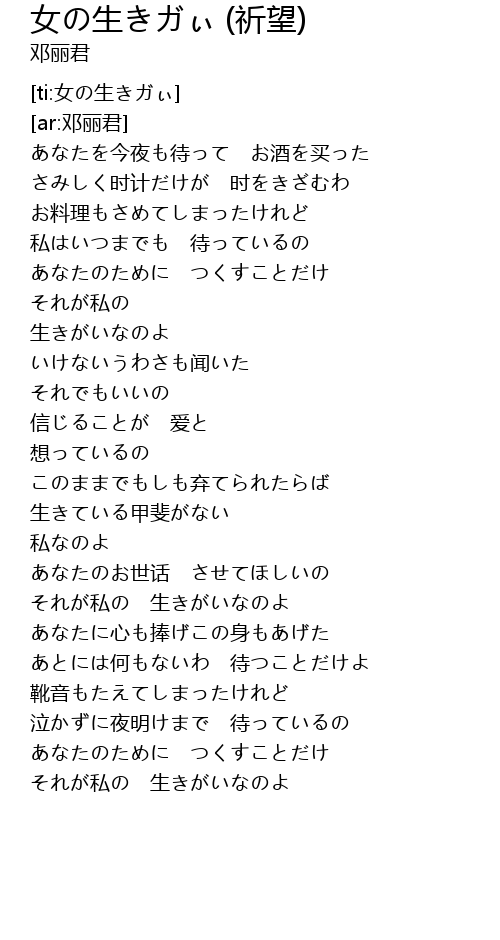 女の生きガぃ (祈望)
邓丽君
[ti:女の生きガぃ]
[ar:邓丽君]
あなたを今夜も待って　お酒を买った
さみしく时计だけが　时をきざむわ
お料理もさめてしまったけれど
私はいつまでも　待っているの
あなたのために　つくすことだけ
それが私の
生きがいなのよ
いけないうわさも闻いた
それでもいいの
信じることが　爱と
想っているの
このままでもしも弃てられたらば
生きている甲斐がない
私なのよ
あなたのお世话　させてほしいの
それが私の　生きがいなのよ
あなたに心も捧げこの身もあげた
あとには何もないわ　待つことだけよ
靴音もたえてしまったけれど
泣かずに夜明けまで　待っているの
あなたのために　つくすことだけ
それが私の　生きがいなのよ